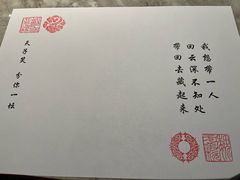 我想带一人
回云深不知处
带回去藏起来
天子笑 分你一坛